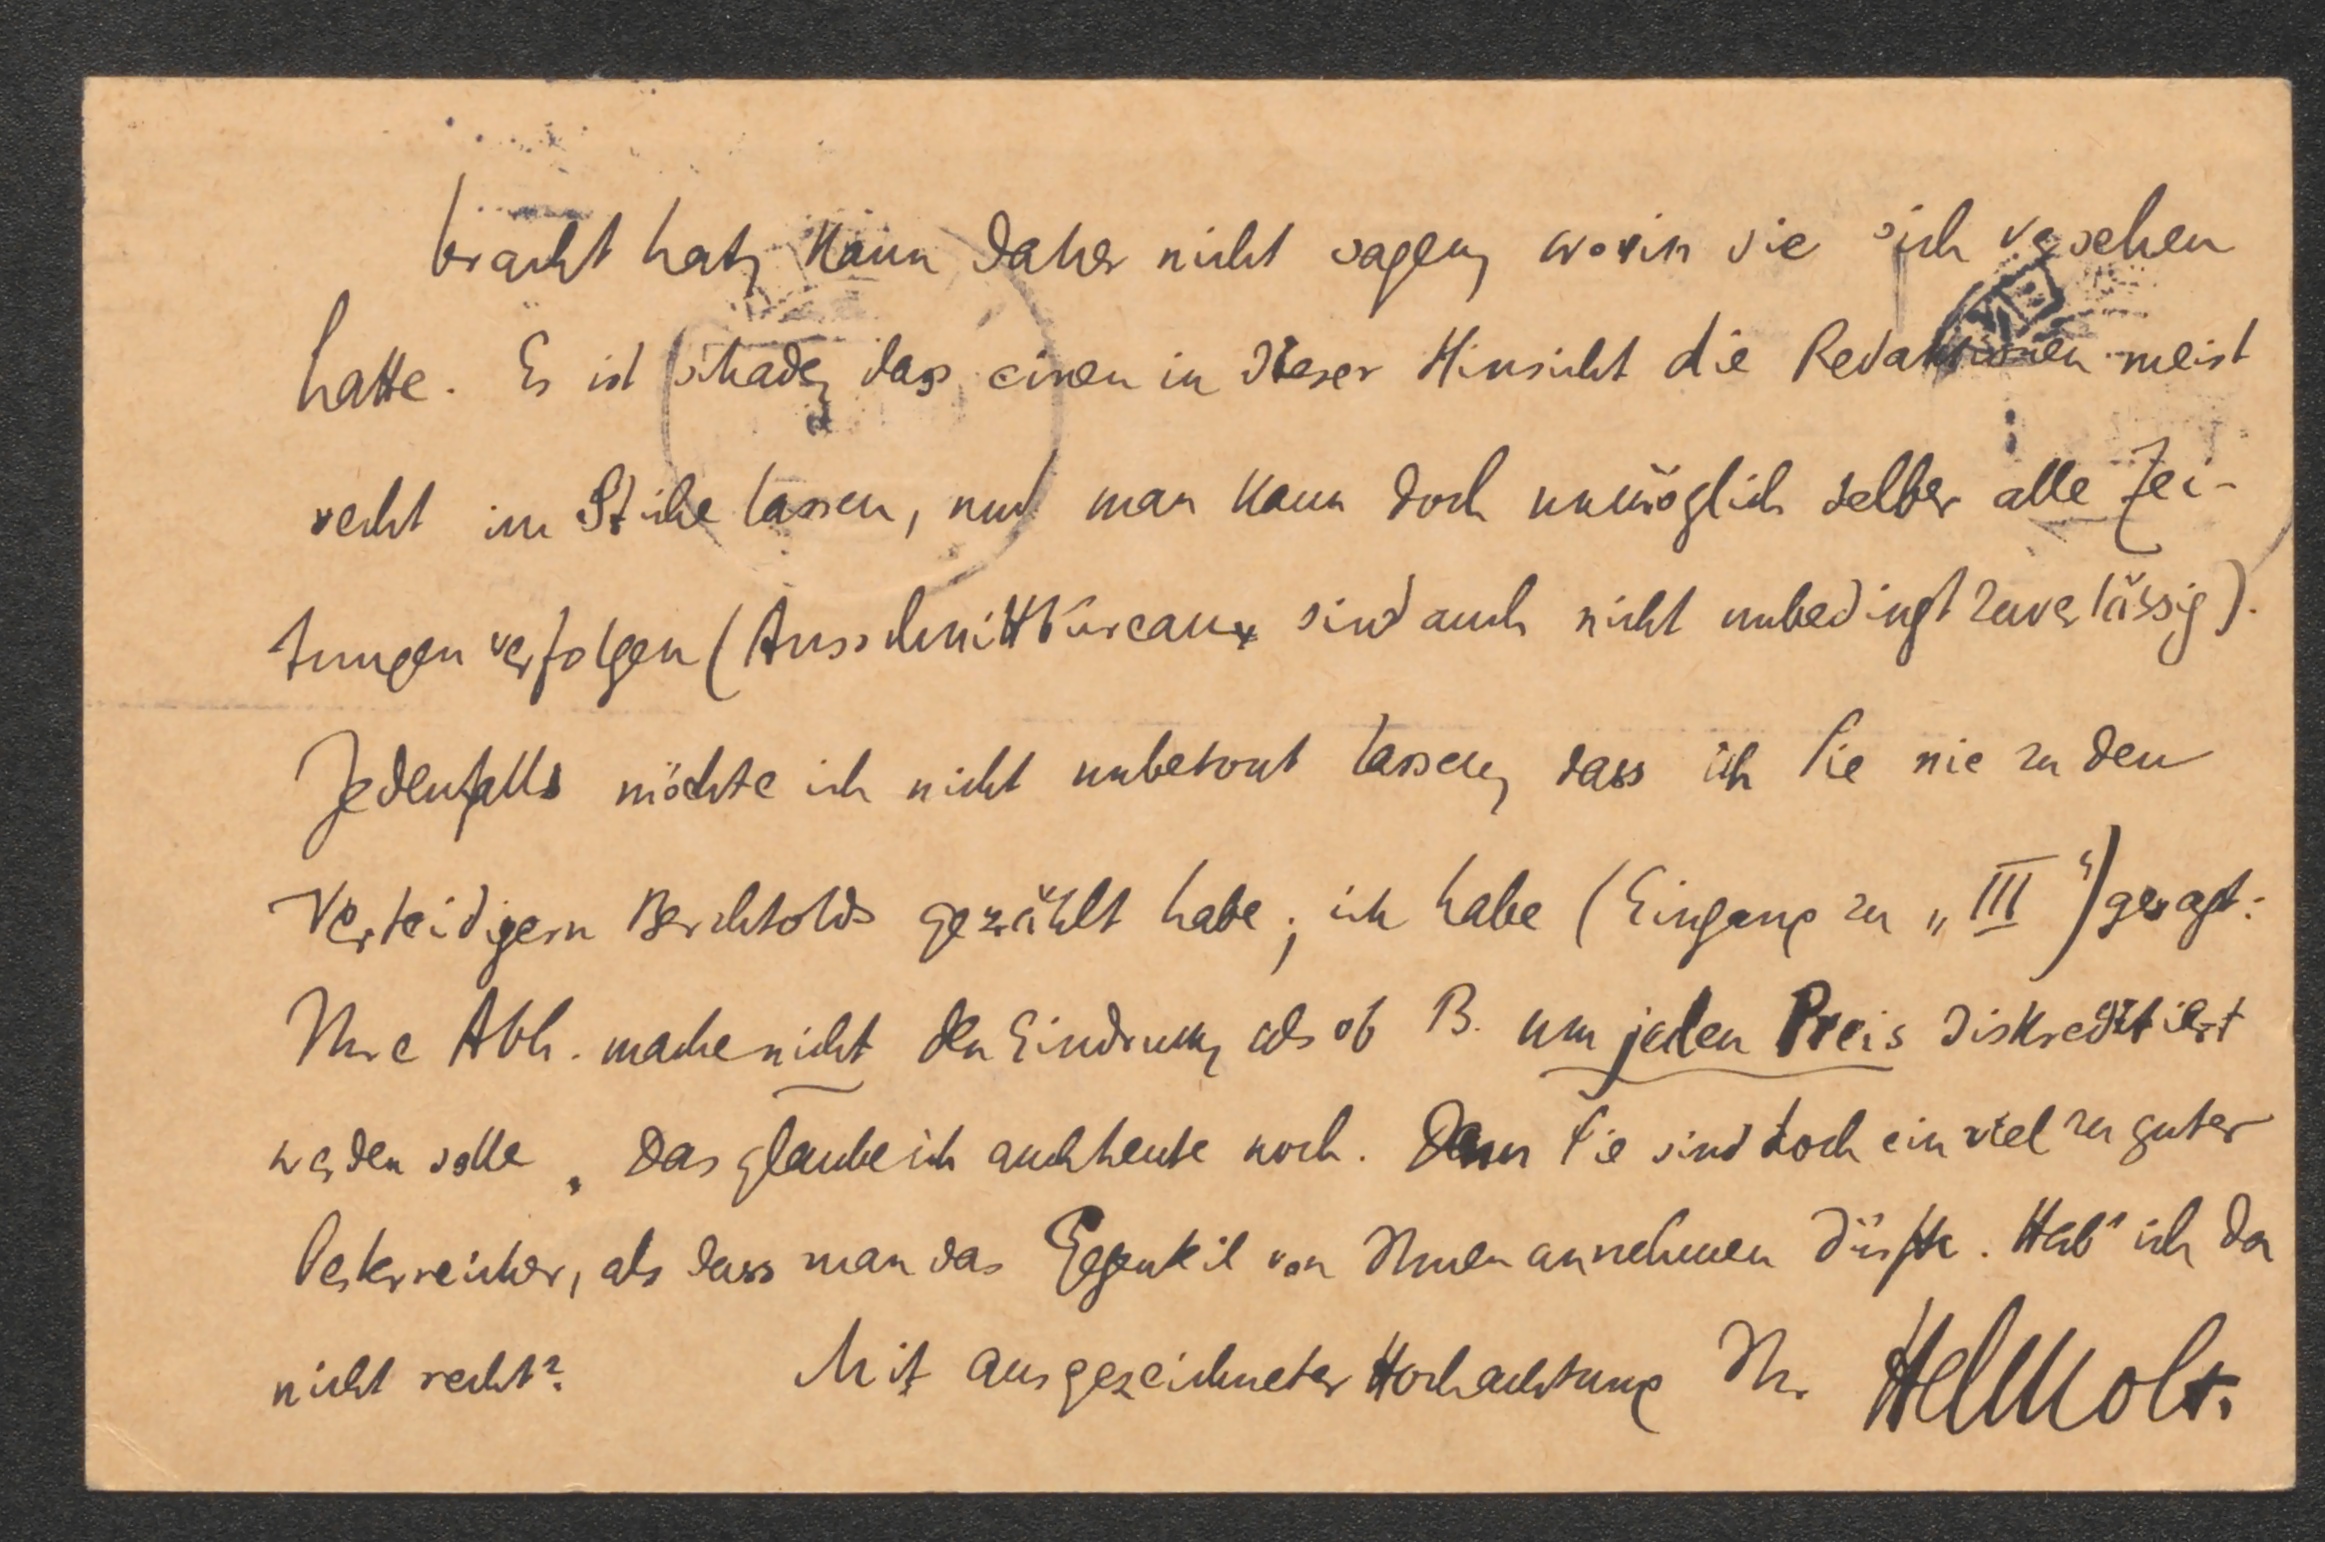 bracht hat, kann daher nicht sagen, worin sie sich versehen
hatte. Es ist schade, dass einen in dieser Hinsicht die Redaktionen meist
recht im Stiche lassen, und man kann doch unmöglich selber alle Zei-
tungen verfolgen (Ausschnittbureaux sind auch nicht unbedingt zuverlässig).
Jedenfalls möchte ich nicht unbetont lassen, dass ich Sie nie zu den
Verteidigern Berchtolds gezählt habe; ich habe (Eingang zu „III“) gesagt:
Ihre Abh. mache nicht den Eindruck, als ob B. um jeden Preis diskreditiert
werden solle. Das glaube ich auch heute noch. Denn Sie sind doch ein viel zu guter
Oesterreicher, als dass man das Gegenteil von Ihnen annehmen dürfte. Hab' ich da
nicht recht? Mit ausgezeichneter Hochachtung Ihr Helmolt.